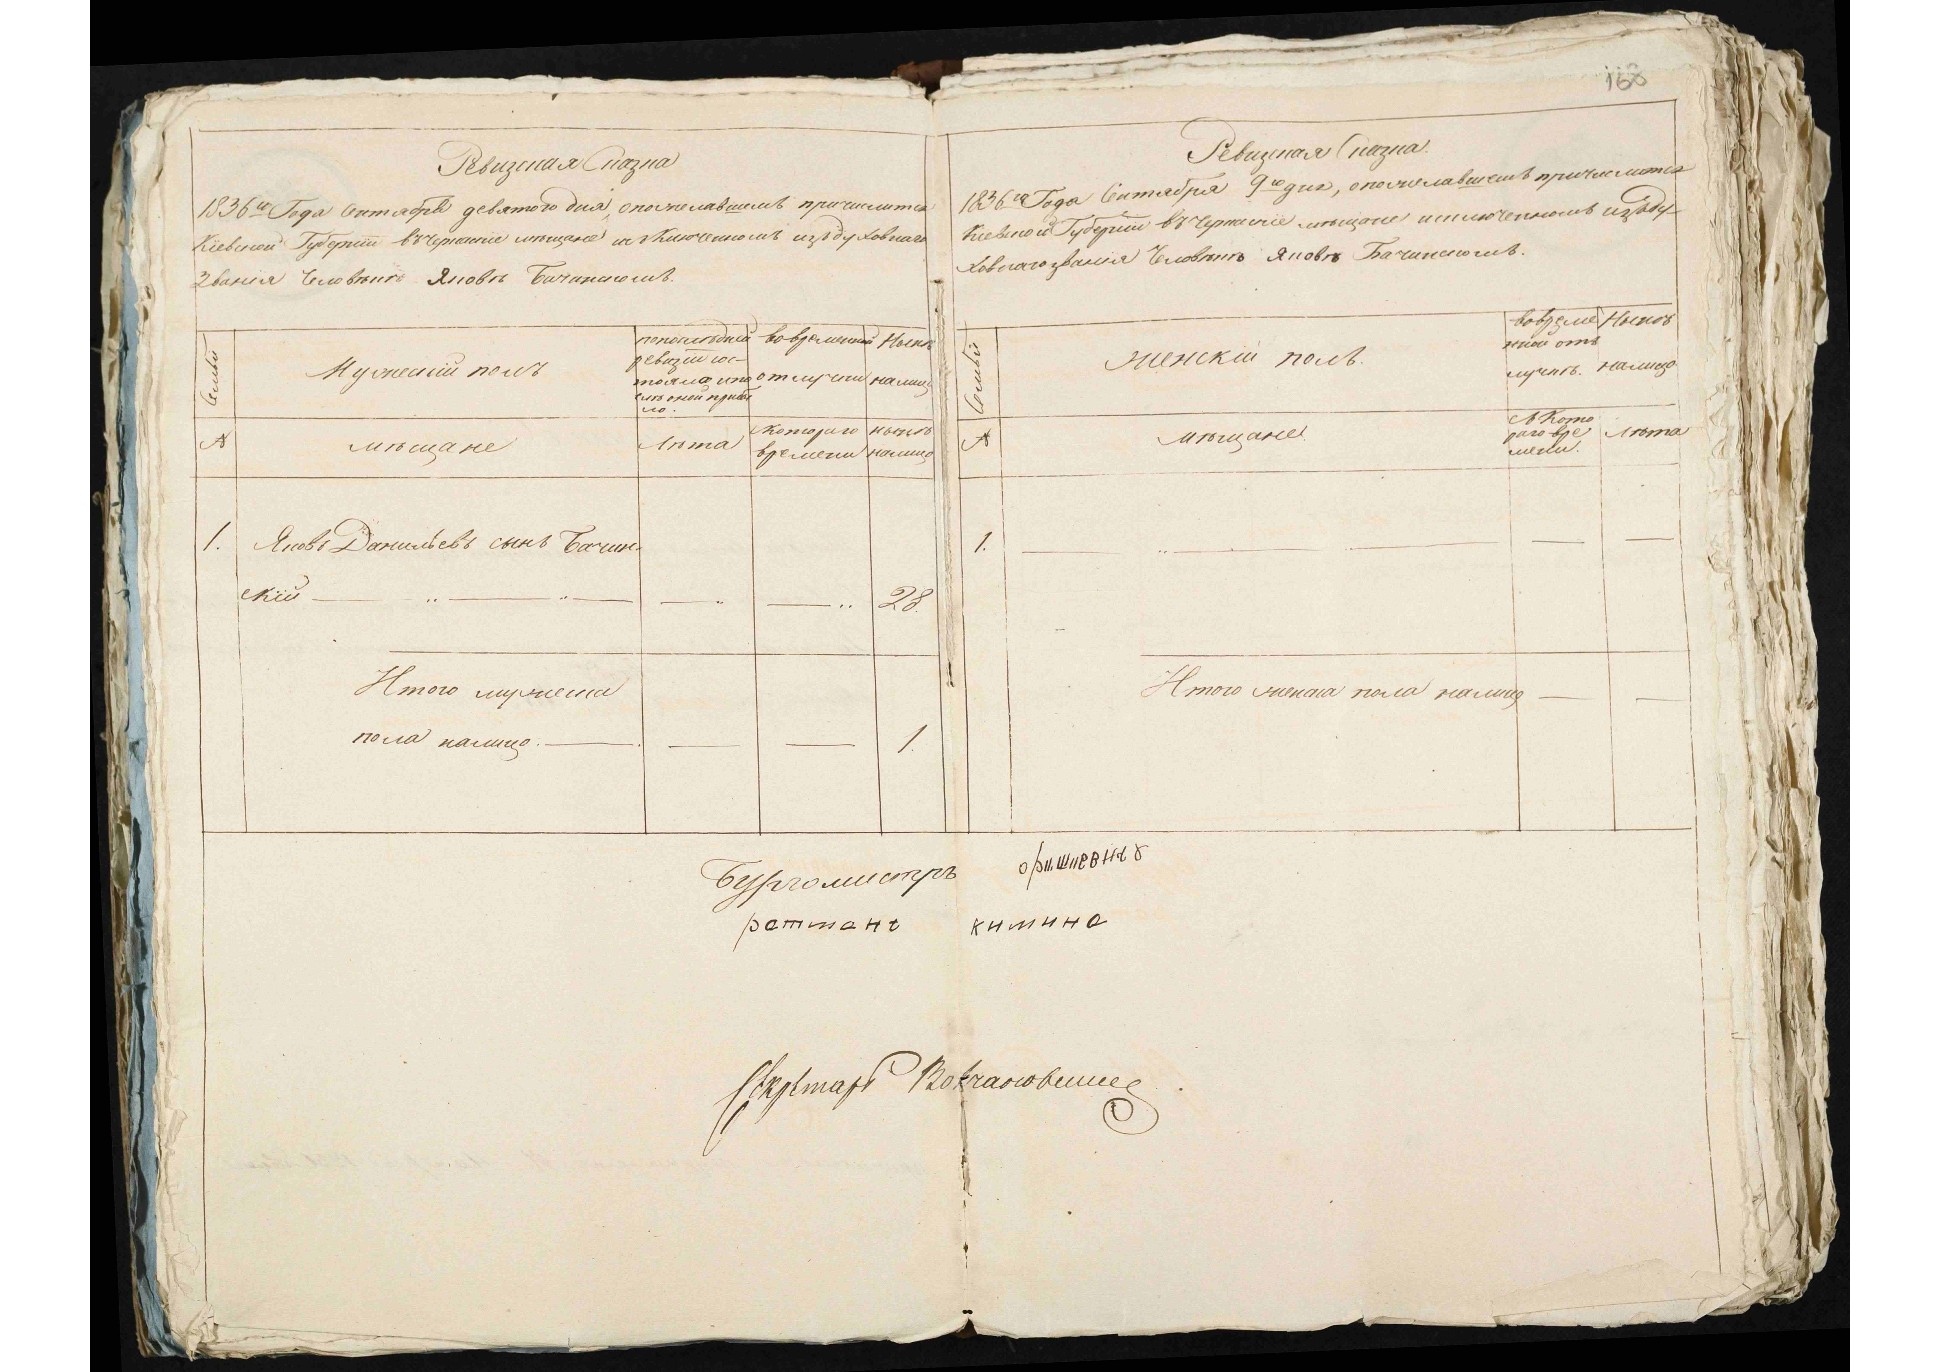 Ревизская Сказка
1836го Года Сентября девятого дня, опожелавшемъ причислится
Кіевской Губерніи въ Черкаскіе мѣщане исключенномъ изъ духовнаго
Званія Человѣкѣ Яковѣ Бачинскомъ.
Семьи
Мужескій полъ
попослѣдней
ревизіи сос-
тояло ипо
слѣ оной прибы
ло.
вовременной
отлучки
Нынѣ
налицо
мѣщане
Лѣта
Скотораго
времени
нынѣ
налицо
1. Яковъ Данильевъ сынъ Бачин-
скій 28.
Итого мужеска
пола налицо. 1.
168
Ревизская Сказка.
1836го Года Сентября 9го дня, опожелавшемъ причислится
Кіевской Губерніи въ Черкаскіе мѣщане исключенномъ изъ ду-
ховнаго званія Человѣкѣ Яковѣ Бачинскомъ.
Семьи
Женскій полъ.
вовреме
нной от
лучкѣ.
Нынѣ
налицо
мѣщане
съ Кото
раго вре
мени.
Лѣта
1.
Итого женска пола налицо
Бургомистръ
ратманъ
Секретарь